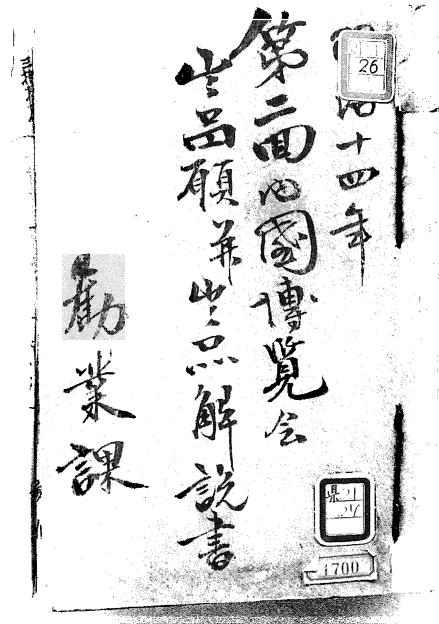 明治十四年
第二回内國博覧会
出品願并出品解説書
勸業課
26
県21
216
1700